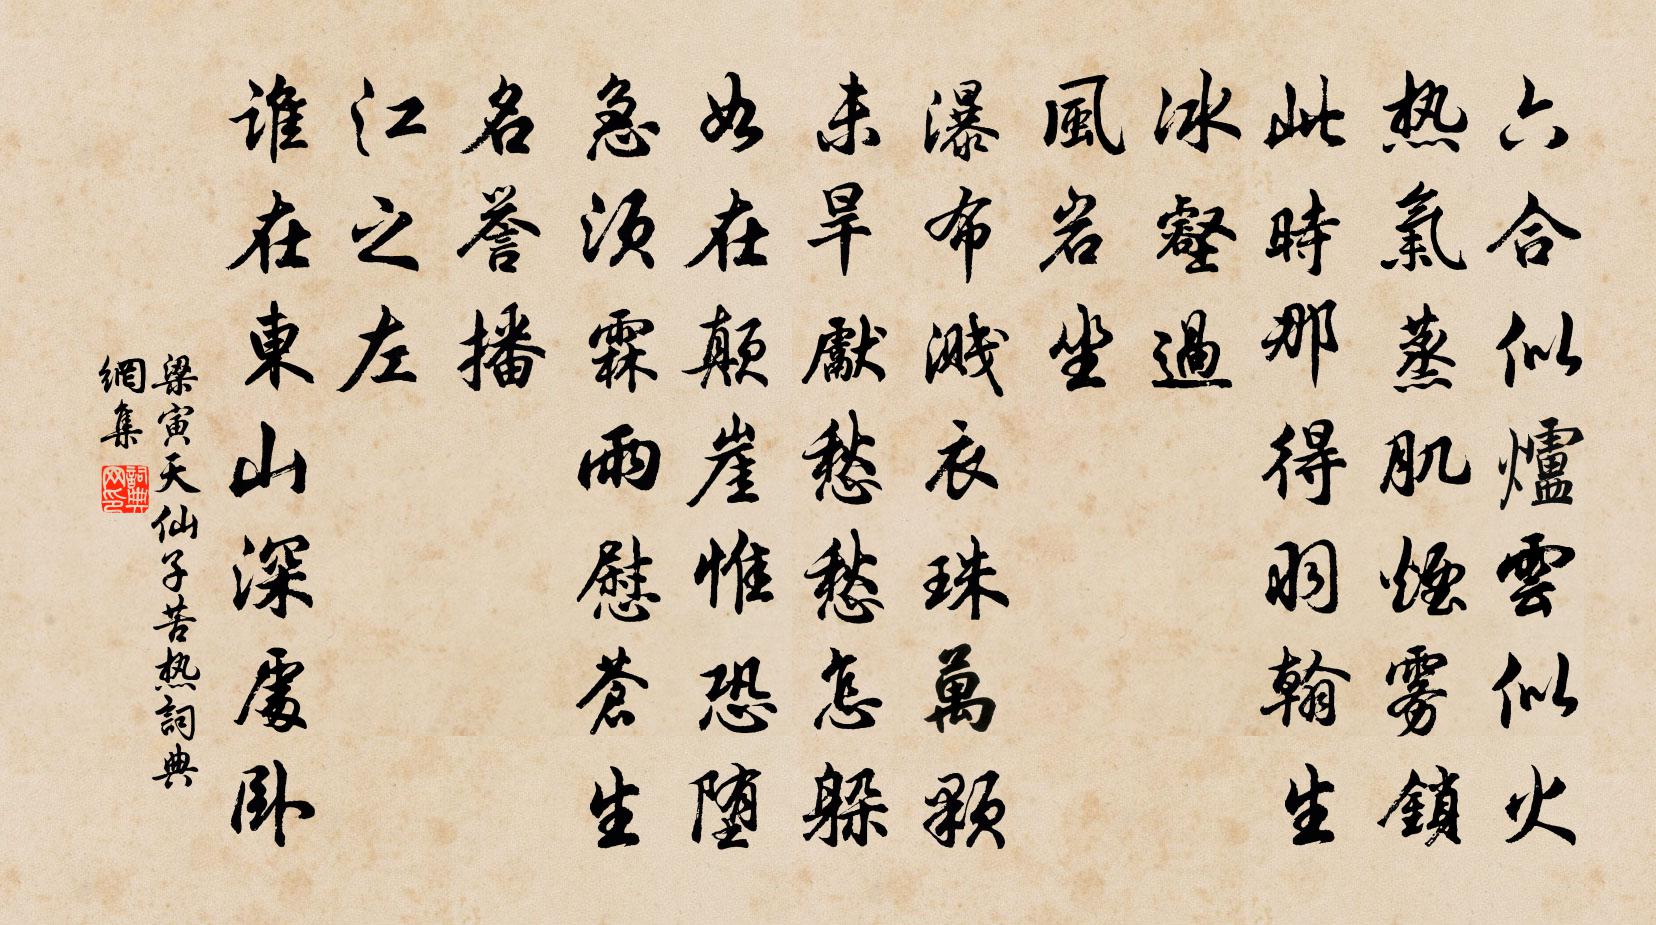 六合似爐雲似火
热氣蒸肌煙雾鎖
此時那得羽翰生
冰壑過
風岩坐
瀑布濺衣珠萬顆
未旱獻愁愁怎躲
如在顛崖惟恐堕
急須霖雨慰蒼生
名誉播
江之左
誰在東山深處卧
梁寅天仙子苦热詞典
網集
詞典网印